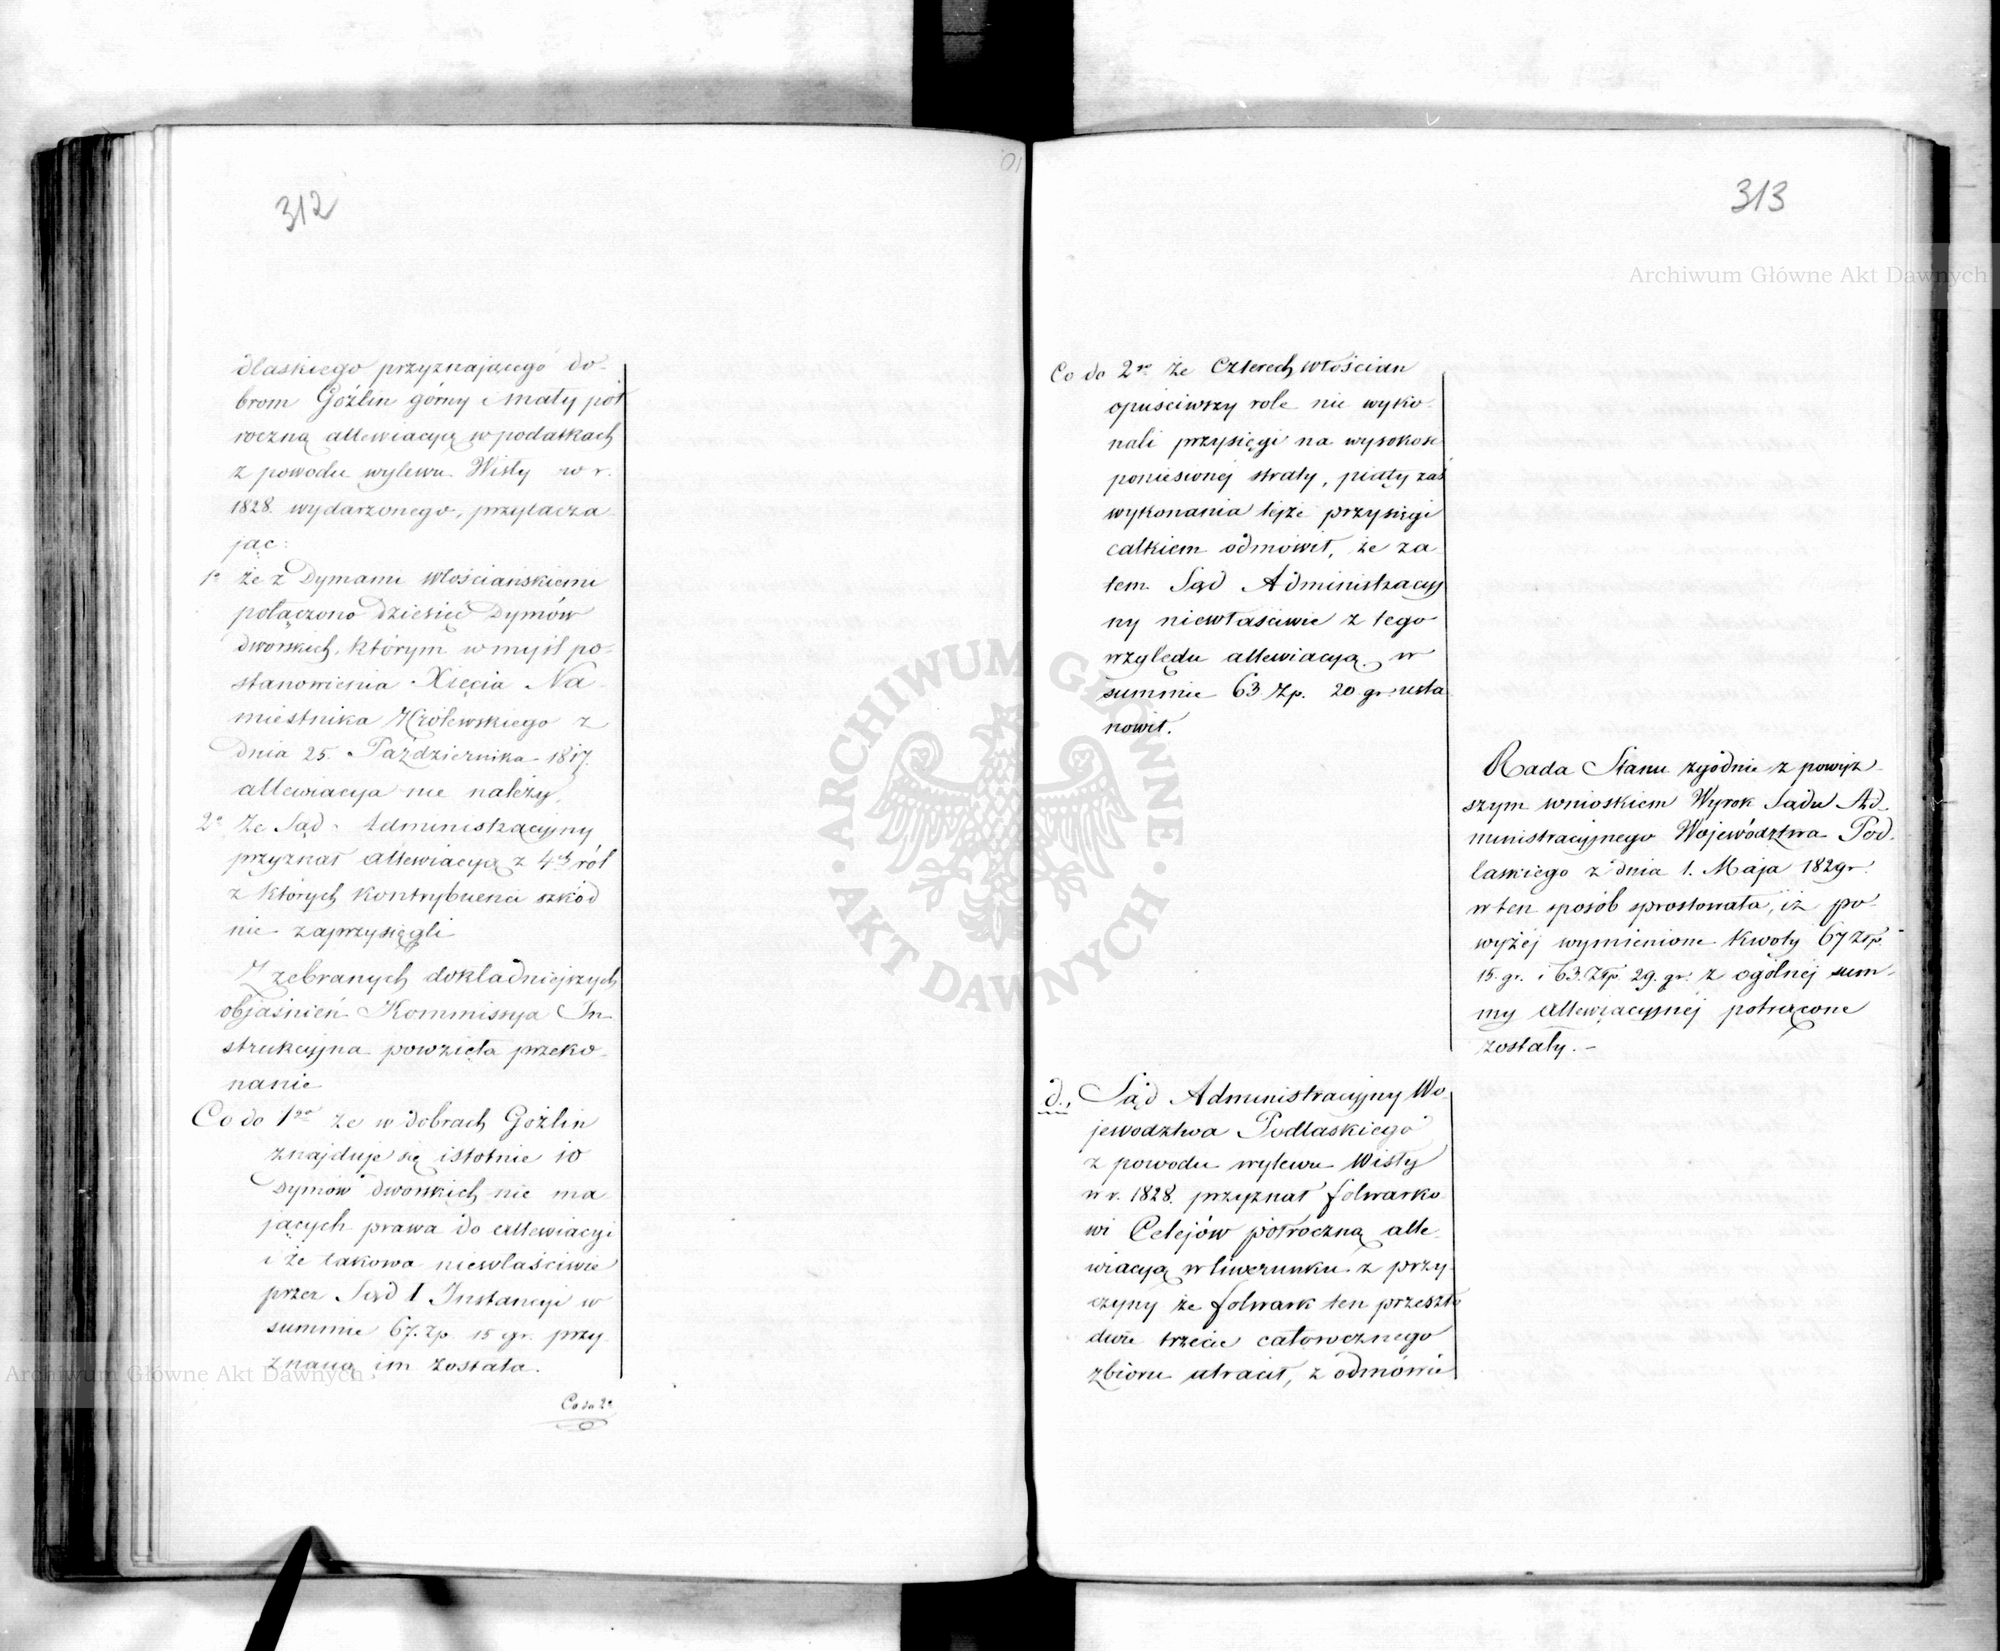 312
dlaskiego przyznającego do-
brom Goźlin górny i mały pół
roczną allewiacyą w podatkach
z powodu wylewu Wisły w r.
1828. wydarzonego, przytacza
jąc:
1º że z Dymami włościańskiemi
połączono dziesięć Dymów
dworskich, którym w myśl po-
stanowienia Xięcia Na-
miestnika Królewskiego z
dnia 25. Października 1817.
allewiacya nie należy,
2º że Sąd Administracyjny
przyznał allewiacyą z 4ch ról
z których kontrybuenci szkód
nie zaprzysięgli
Z zebranych dokładniejszych
objaśnień Kommissya In-
strukcyjna powzięła przeko-
nanie
Co do 1go że w dobrach Goźlin
znajduje się istotnie 10
dymów dworskich nie ma
jących prawa do allewiacyi
i że takowa niewłaściwie
przez Sąd I Instancyi w
summie 67. zp. 15 gr. przy
znaną im została.
Co do 2º
313
Co do 2go że Czterech włościan
opuściwszy role nie wyko-
nali przysięgi na wysokość
poniesionej straty, piąty zaś
wykonania tejże przysięgi
całkiem odmówił, że za
tem Sąd Administracyj
ny niewłaściwie z tego
względu allewiacyą w
summie 63 Zp. 20 gr. usta
nowił.
Rada Stanu zgodnie z powyż-
szym wnioskiem Wyrok Sądu Ad-
ministracyjnego Województwa Pod-
laskiego z dnia 1. Maja 1829 r.
w ten sposób sprostowała, iż po-
wyżej wymienione kwoty 67 Złp.
15. gr. i 63. Złp. 29. gr. z ogólnej sum-
my allewiacyjnéj potrącone
zostały. –
d., Sąd Administracyjny Wo-
jewodztwa Podlaskiego
z powodu wylewu Wisły
w r. 1828. przyznał folwarko
wi Celejów półroczną alle-
wiacyą w liwerunku z przy-
czyny że folwark ten przeszło
dwie trzecie całorocznego
zbioru utracił, z odmówie
Archiwum Główne Akt Dawnych
Archiwum Główne Akt Dawnych
ARCHIWUM GŁÓWNE · AKT DAWNYCH ·